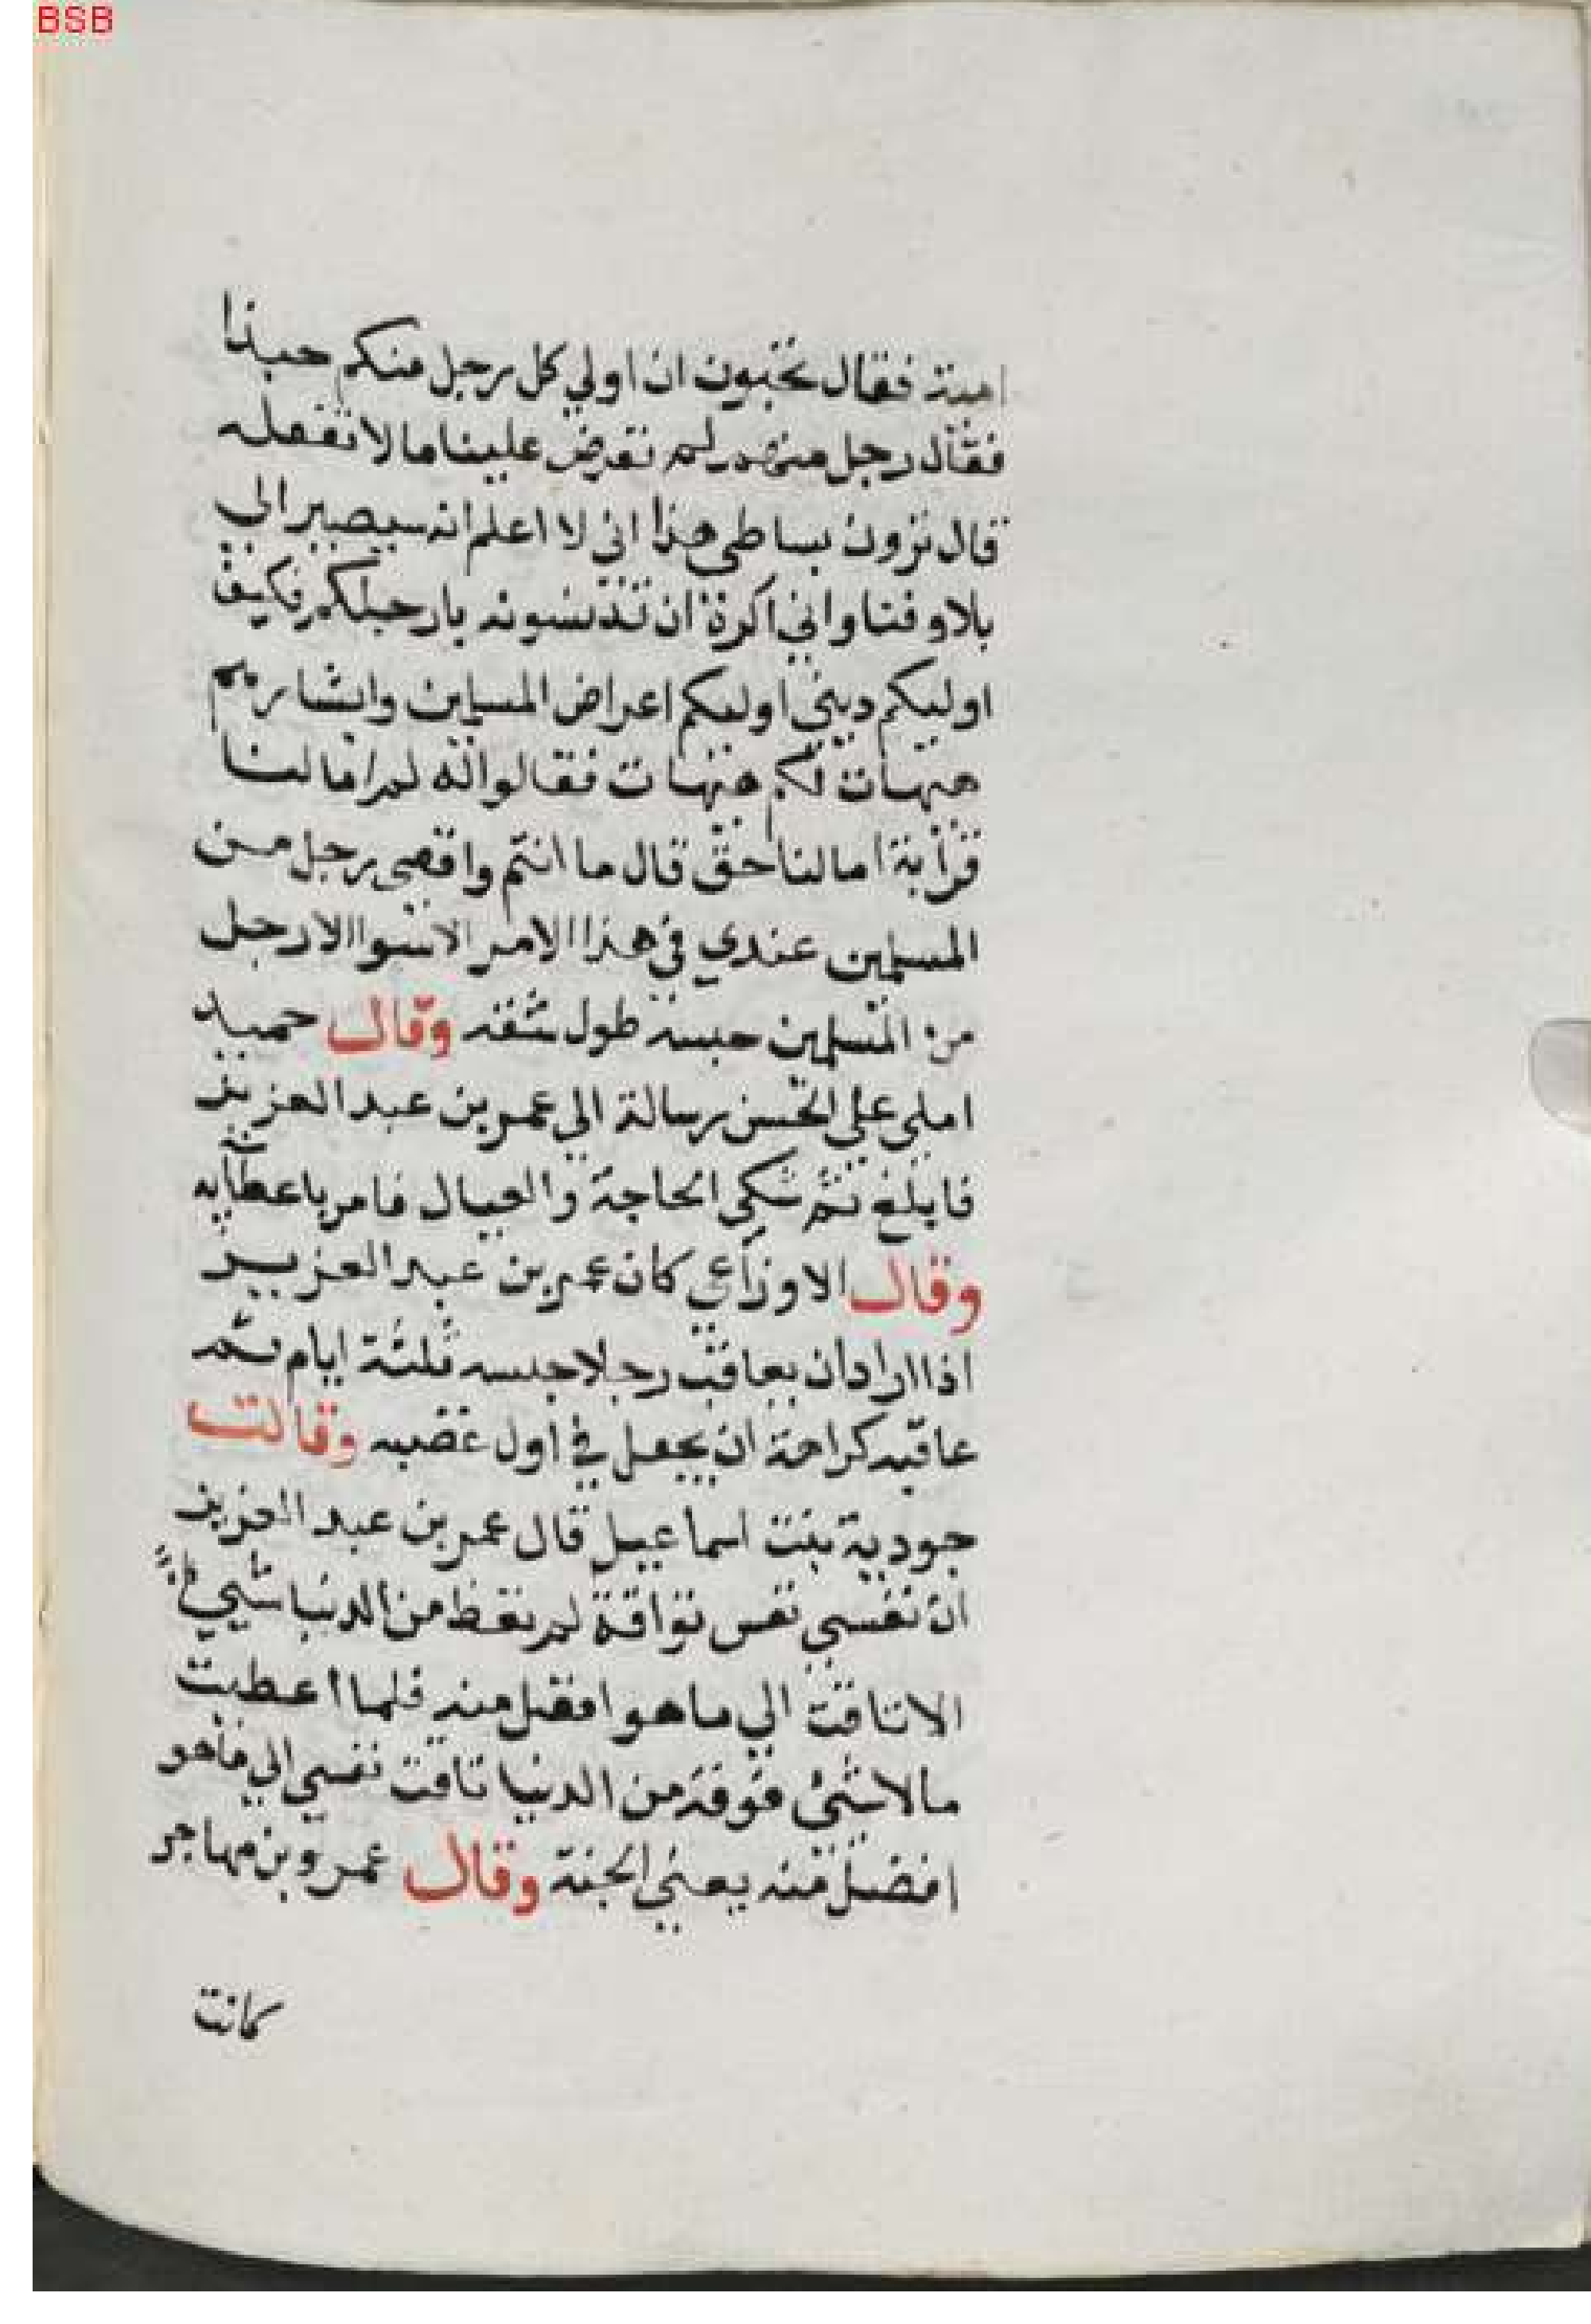 BSB
امية فقال تحبون ان اولي كل رجل منكم حبذا
فقال رجل منهم لم تفرض علينا ما لا تفعله
قال ترون بساطي هذا اني لا اعلم انه سيصير الي
بلاو فنا واني اكرة ان تدنسونه بارجلكم فكيف
اوليكم ديني اوليكم اعراض المسلمين وابشارهم
هيهات لكم هيهات فقالوا له لم اما لنا
قرابة اما لنا حق قال ما انتم واقصى رجل من
المسلمين عندي في هذا الامر الا سوا الا رجل
من المسلمين حبسه طول شقه وقال حميد
املى علي الحسن رسالة الي عمر بن عبد العزيز
فابلغ ثم شكى الحاجة والعيال فامر باعطآيه
وقال الاوزاعي كان عمر بن عبد العزيز
اذا اراد ان يعاقب رجلا حبسه ثلثة ايام ثم
عاقبه كراهة ان يجعل في اول غضبه وقالت
جودية بنت اسماعيل قال عمر بن عبد العزيز
ان نفسي نفس تواقة لم تعط من الدنيا شيئا
الا تاقت الي ما هو افضل منه فلما اعطيت
مالا شئ فوقه من الدنيا تاقت نفسي الي ما هو
افضل منه يعني الجنة وقال عمرو بن مهاجر
كانت